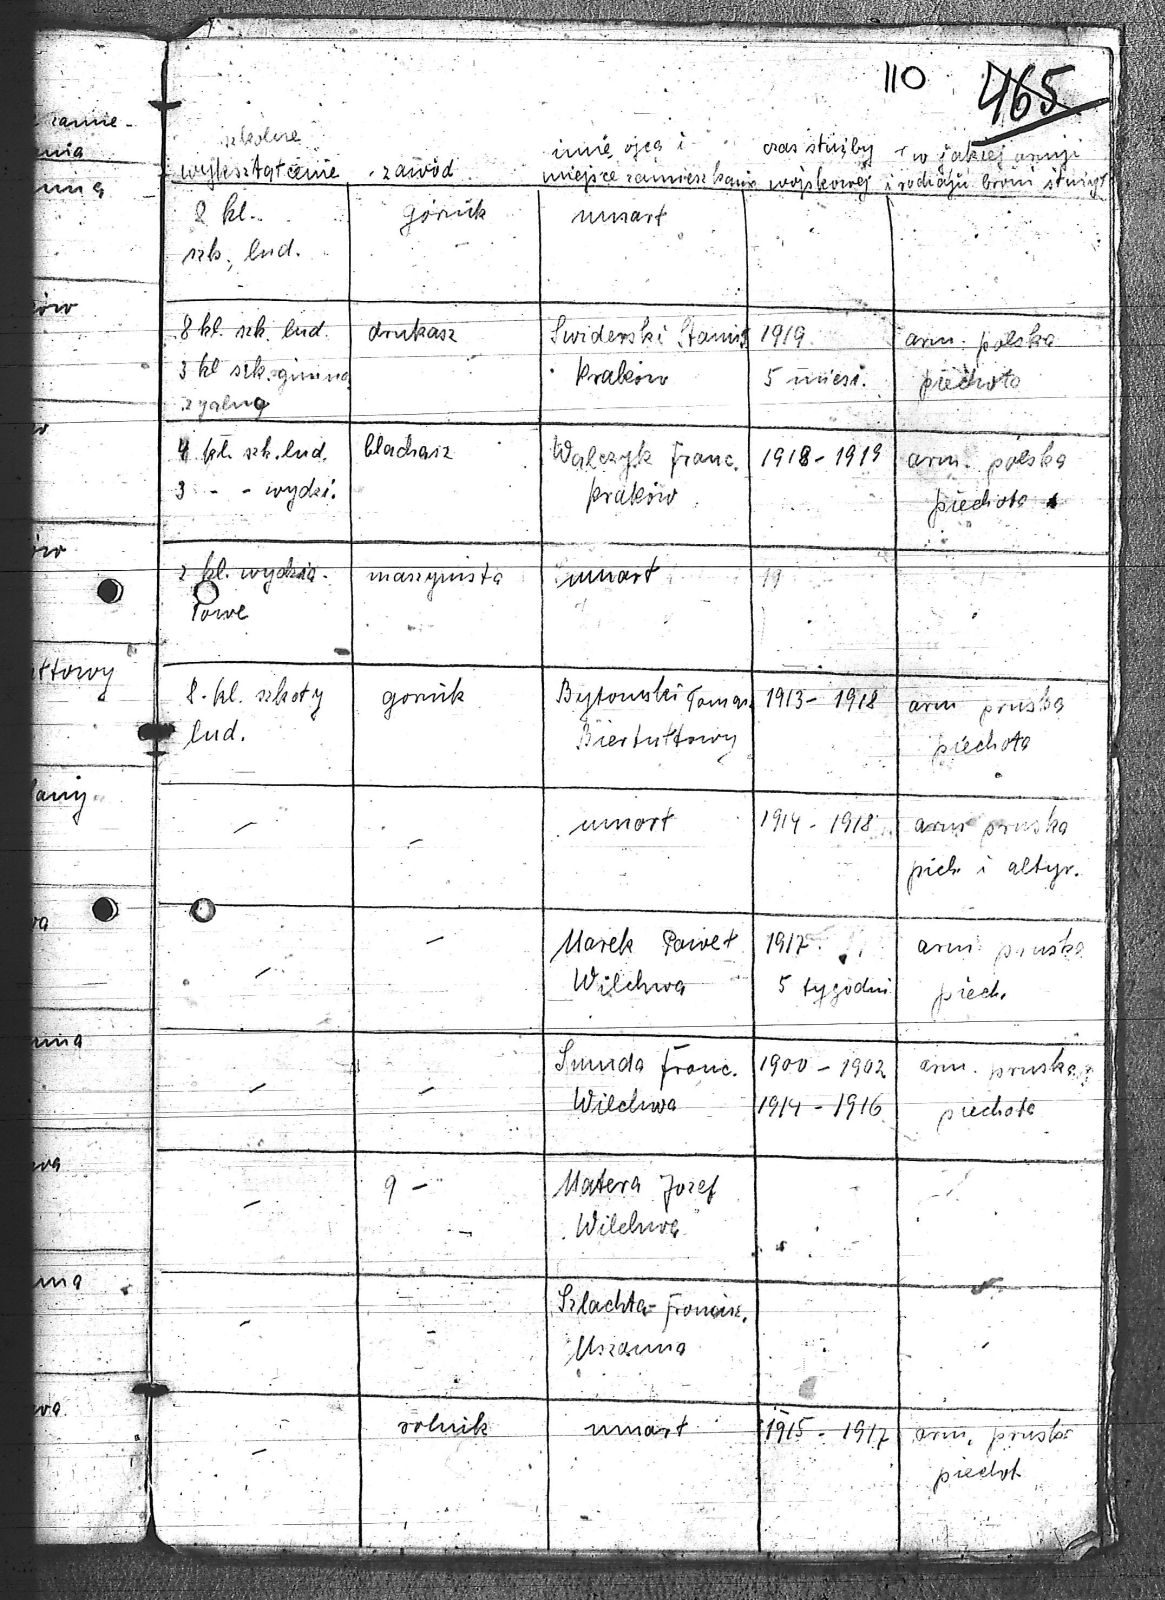 110 465
szkolne
wykształcenie
zawód
imię ojca i
miejsce zamieszkania
czas służby
wojskowej
w jakiej armji
i rodzaju broni służył
zamie-
8 kl.
szk. lud.
górnik
umart
8 kl. szk. lud.
3 kl szk. gimna
zyalną
drukasz
Swiderski Stanis
Kraków
1919
5 miesi.
arm. polska
piechota
4 kl. szk. lud.
3 - - wydzi.
blachasz
Walczyk Franc.
Kraków
1918 - 1919
arm. polska
piechota
2 kl. wydzia-
łowe
maszynista
umart
19
8. kl. szkoły
lud.
gornik
Bytomski Tomas.
Biertułtowy
1913 - 1918
arm pruska
piechota
umart
1914 - 1918
arm pruska
piech. i altyr.
Marek Paweł
Wilchwa
1917
5 tygodni
arm pruska
piech.
Smuda Franc.
Wilchwa
1900 - 1902
1914 - 1916
arm. pruska
piechota
9 -
Matera Jozef
Wilchwa
Szlachta Francisz.
Mszanna
rolnik
umart
1915 - 1917
arm. pruska
piechot